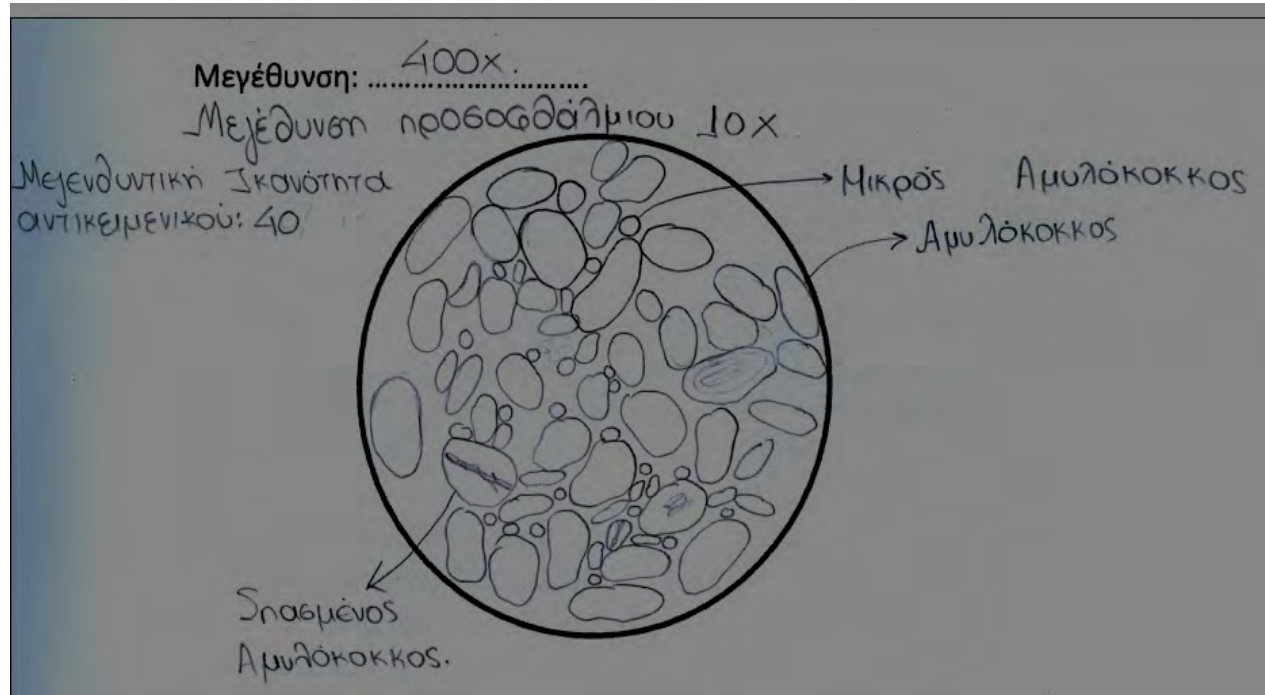 Μεγέθυνση: ....400x.....
Μεγέθυνση προσοφθάλμιου 10x
Μεγενθυντική Ικανότητα
αντικειμενικού: 40
Μικρός Αμυλόκοκκος
Αμυλόκοκκος
Σπασμένος
Αμυλόκοκκος.